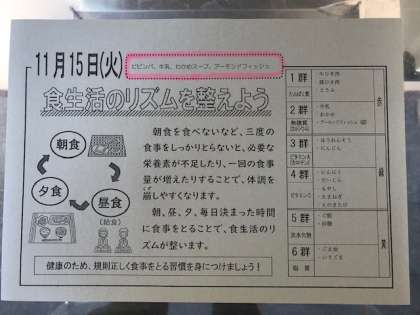 11月15日(火)
ビビンバ、牛乳、わかめスープ、アーモンドフィッシュ
食生活のリズムを整えよう
朝食
夕食
昼食
(給食)
朝食を食べないなど、三度の
食事をしっかりとらないと、必要な
栄養素が不足したり、一回の食事
量が増えたりすることで、体調を
崩しやすくなります。
朝、昼、夕、毎日決まった時間
に食事をとることで、食生活のリ
ズムが整います。
健康のため、規則正しく食事をとる習慣を身につけましょう！
1群
たんぱく質
牛ひき肉
豚ひき肉
とうふ
2群
無機質
(カルシウム)
牛乳
わかめ
アーモンドフィッシュ
3群
ビタミンA
(カロテン)
ほうれんそう
にんじん
4群
ビタミンC
にんにく
だいこん
もやし
たまねぎ
えのきたけ
5群
炭水化物
ご飯
砂糖
6群
脂質
ごま油
いりごま
赤
緑
黄